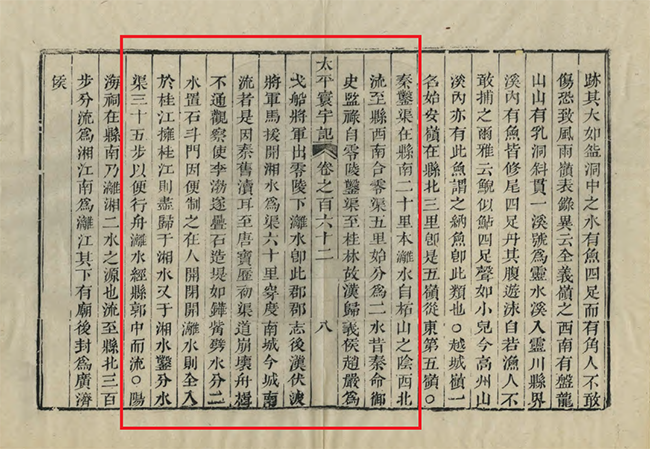 跡其大如盌洞中之水有魚四足而有角人不敢
傷恐致風雨嶺表錄異云全義嶺之西南有盤龍
山山有乳洞斜貫一溪號爲靈水溪入靈川縣界
溪內有魚皆修尾四足丹其腹遊泳自若漁人不
敢捕之爾雅云鯢似鮎四足聲如小兒今高州山
溪內亦有此魚謂之納魚卽此類也○越城嶺一
名始安嶺在縣北三里卽是五嶺從東第五嶺○
秦鑿渠在縣南二十里本灕水自柘山之陰西北
流至縣西南合零渠五里始分爲二水昔秦命御
史監祿自零陵鑿渠至桂林故漢歸義侯趙嚴爲
太平寰宇記 卷之百六十二 八
戈船將軍出零陵下灕水卽此郡郡志後漢伏波
將軍馬援開湘水爲渠六十里穿度南城今城南
流者是因秦舊瀆耳至唐寶曆初渠道崩壞舟檝
不通觀察使李渤遂疊石造堤如鏵觜劈水分二
水置石斗門因便制之在人開閉開灕水則全入
於桂江擁桂江則盡歸于湘水又于湘水鑿分水
渠三十五步以便行舟灕水經縣郭中而流○陽
海祠在縣南乃灕湘二水之源也流至縣北三百
步分流爲湘江南爲灕江其下有廟後封爲廣濟
侯